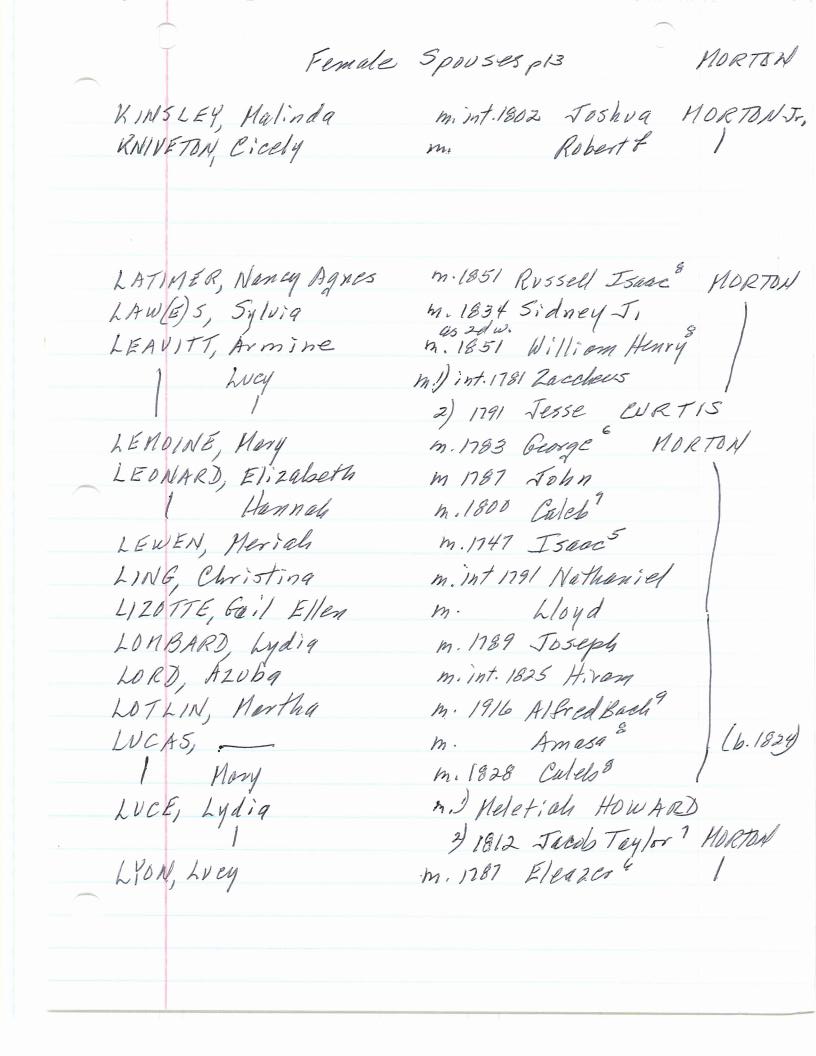 Female Spouses p13 MORTON
KINSLEY, Malinda m. int. 1802 Joshua MORTON Jr.
KNIVETON, Cicely m. Robert
LATIMER, Nancy Agnes m. 1851 Russell Isaac⁸ MORTON
LAW(E)S, Sylvia m. 1834 Sidney J.
as 2d w.
LEAVITT, Armine m. 1851 William Henry⁸
Lucy m. 1) int. 1781 Zaccheus
2) 1791 Jesse CURTIS
LEMOINE, Mary m. 1783 George⁶ MORTON
LEONARD, Elizabeth m 1787 John
Hannah m. 1800 Caleb⁷
LEWEN, Meriah m. 1747 Isaac⁵
LING, Christina m. int 1791 Nathaniel
LIZOTTE, Gail Ellen m. Lloyd
LOMBARD, Lydia m. 1789 Joseph
LORD, Azuba m. int. 1825 Hiram
LOTLIN, Martha m. 1916 Alfred Bach⁹
LUCAS, —— m. Amasa⁸ (b. 1824)
Mary m. 1828 Caleb⁸
LUCE, Lydia m. 1) Meletiah HOWARD
2) 1812 Jacob Taylor⁷ MORTON
LYON, Lucy m. 1787 Eleazer⁶